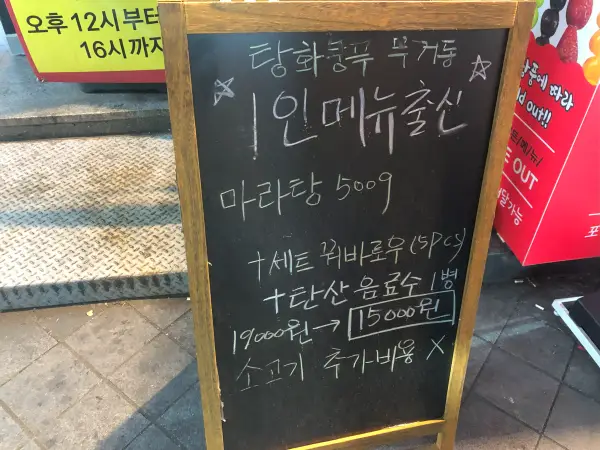 오후 12시부터
16시까지
탕화쿵푸 무거동
1인메뉴출신
마라탕 500g
+세트 꿔바로우 (5pcs)
+탄산음료수 1병
19000원→ 15000원
소고기 추가비용 X
중에 따라
out!!
OUT